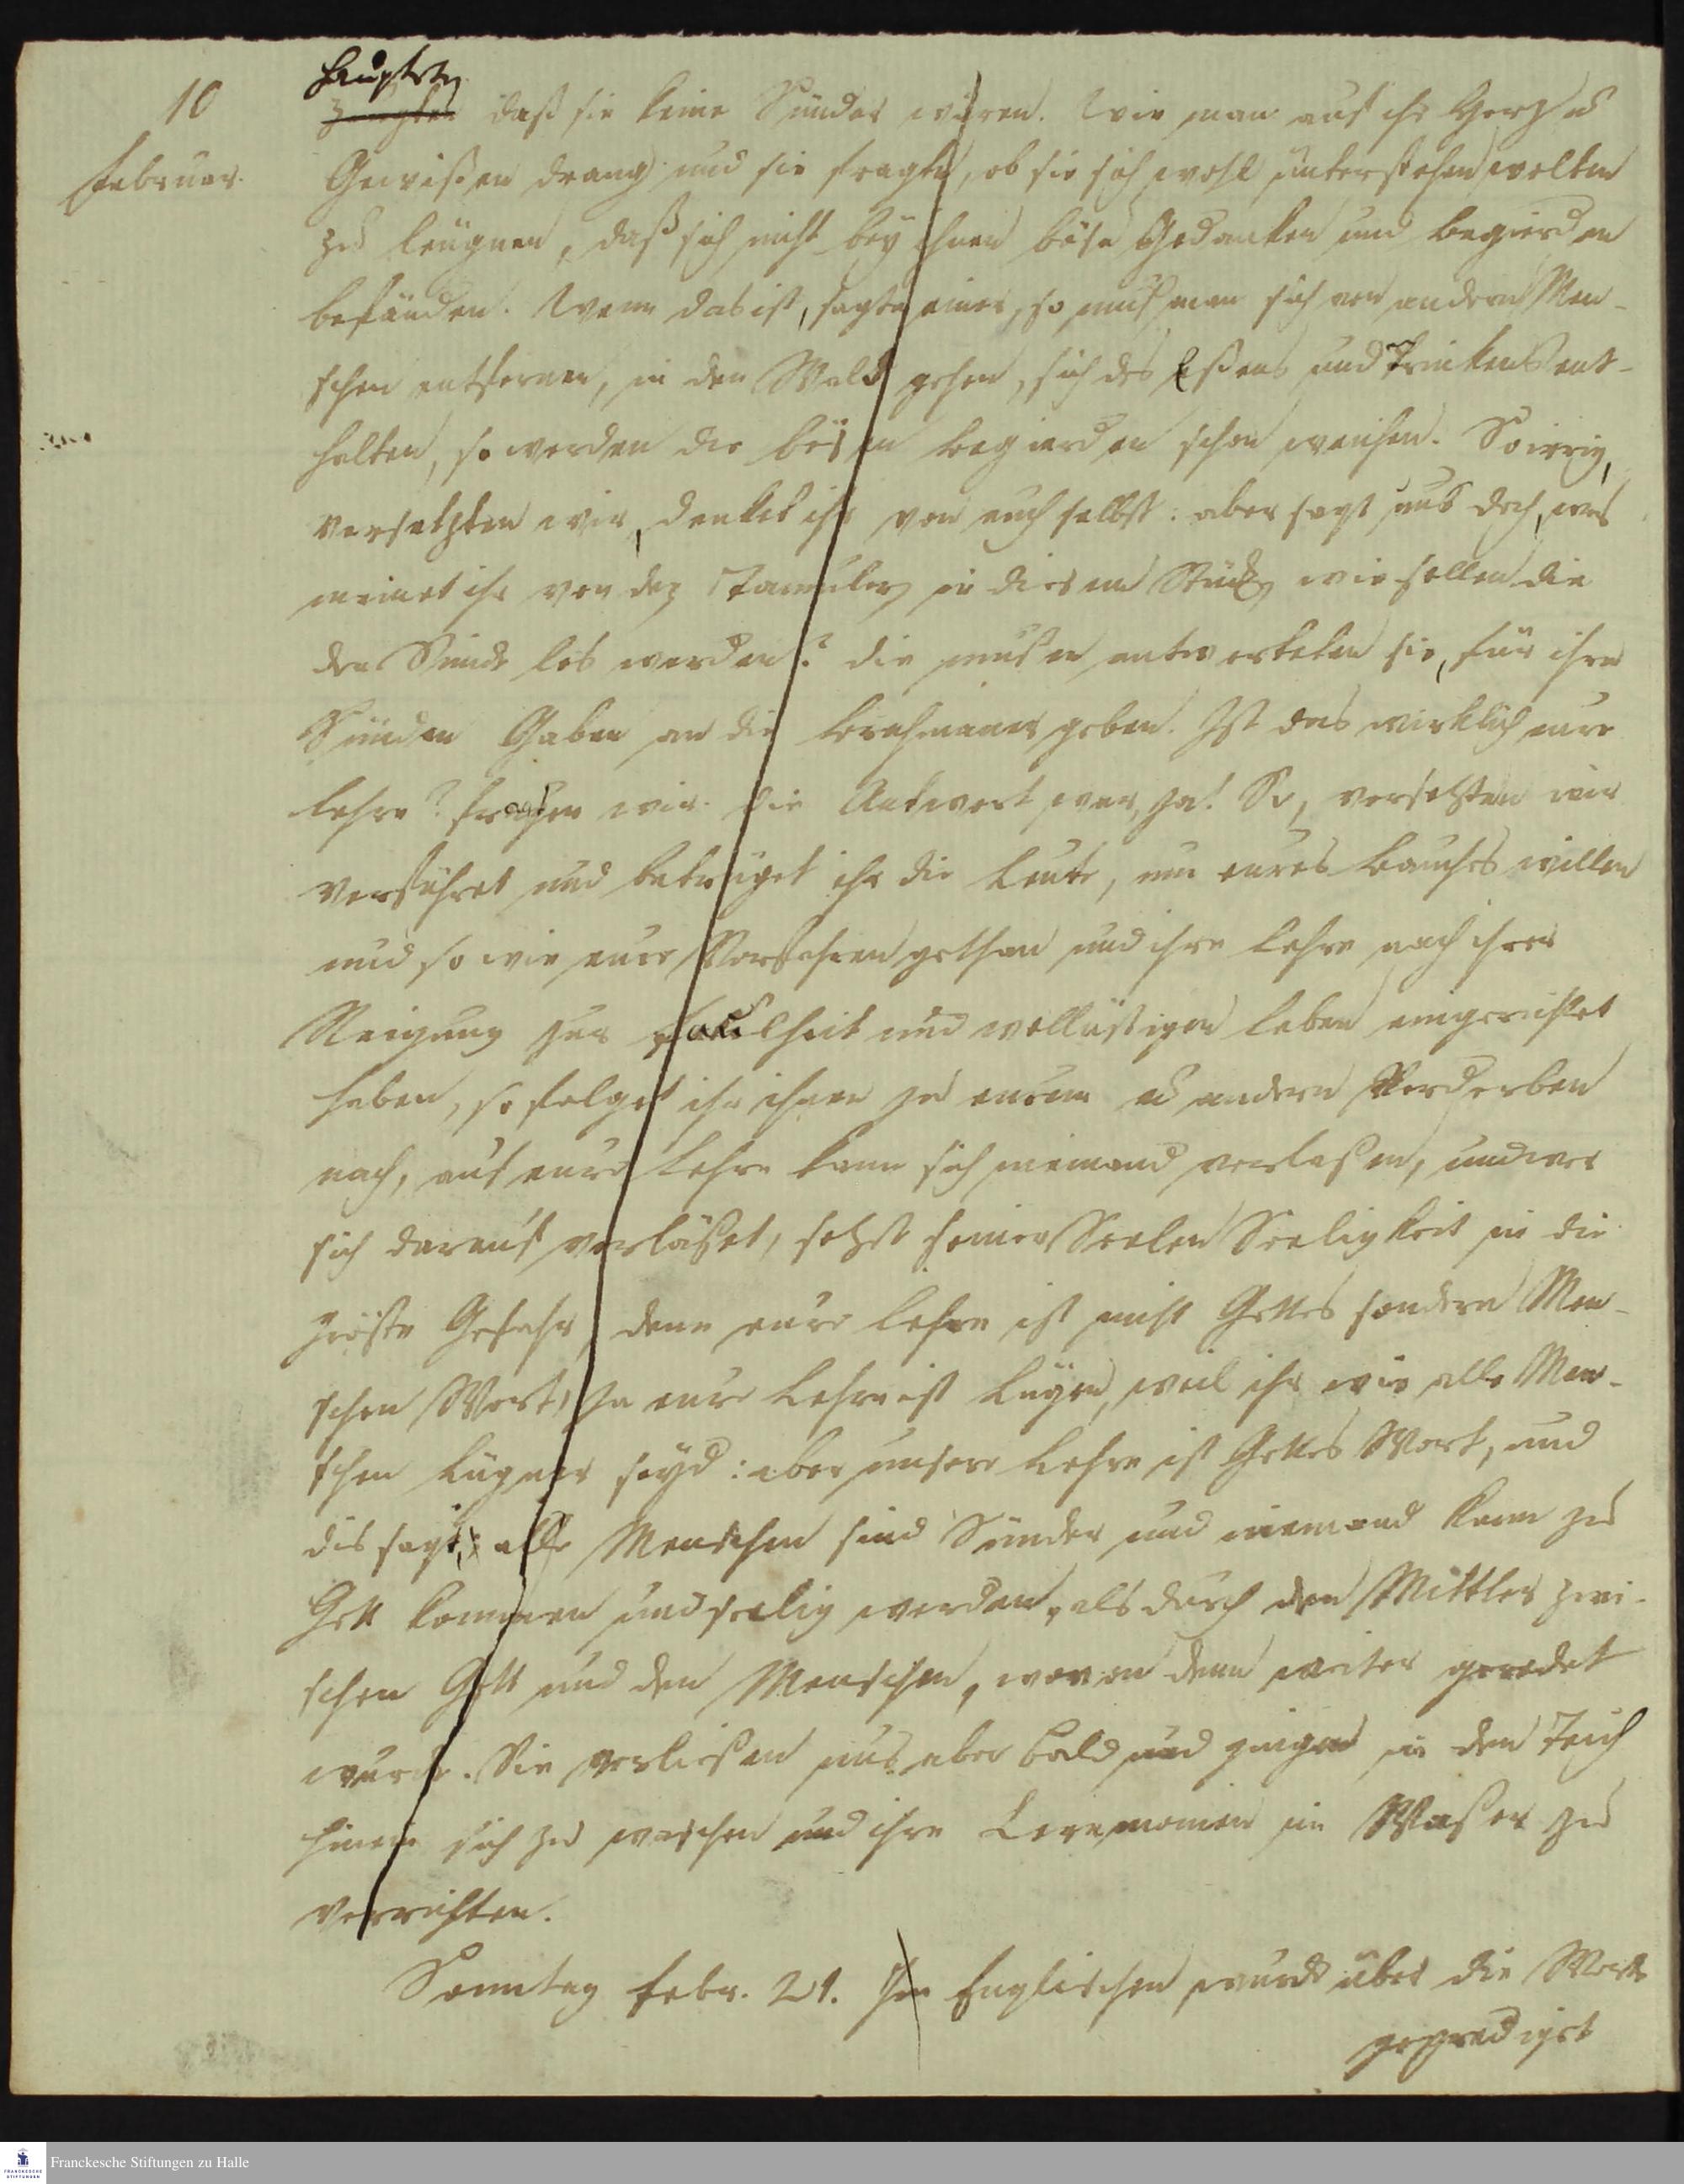 10
Februar.
haupteten
zeugten daß sie keine Sünder wären. Wie man auf ihr Herz u
Gewißen drang und sie fragte, ob sie sich wohl unterstehen wolten
zu leugnen, daß sich nicht bey ihnen böse Gedanken und begierden
befänden. Wenn das ist, sagte einer, so muß man sich von andern Men-
schen entfernen, in den Wald gehen, sich des Eßens und Trinkens ent-
halten, so werden die bösen begierden schon weichen. So irrig,
versetzten wir, denket ihr von euch selbst: aber sagt uns doch, was
meinet ihr von den Tamulern in diesem Stück, wie sollen die
der Sünde los werden? die müßen antworteten sie, für ihre
Sünden Gaben an die bramaner geben. Ist das wirklich eure
Lehre? fragten wir. die Antwort war, ja! So, versetzten wir
verführet und betrüget ihr die Leute, um eures bauches willen
und so wie eure Vorfahren gethan und ihre Lehre nach ihrer
Neigung zur Faulheit und wollüstigen Leben eingerichtet
haben, so folget ihr ihnen zu eurem u andern Verderben
nach, auf eure Lehre kann sich niemand verlaßen, und wer
sich darauf verläßet, setzt seiner Seelen Seeligkeit in die
größte Gefahr, denn eure Lehre ist nicht Gottes sondern Men-
schen Wort, Ja eure Lehre ist Lügen, weil ihr wie alle Men-
schen Lügner seyd: aber unsere Lehre ist Gottes Wort, und
dis sagt: alle Menschen sind Sünder und niemand kann zu
Gott kommen und seelig werden, als durch den Mittler zwi-
schen Gott und den Menschen, wovon denn weiter geredet
wurde. Sie verließen uns aber bald und gingen in den Teich
hinein sich zu waschen und ihre Ceremonien im Waßer zu
verrichten.
Sonntag Febr. 21. Im Englischen wurde über die Worte
geprediget
Franckesche Stiftungen zu Halle